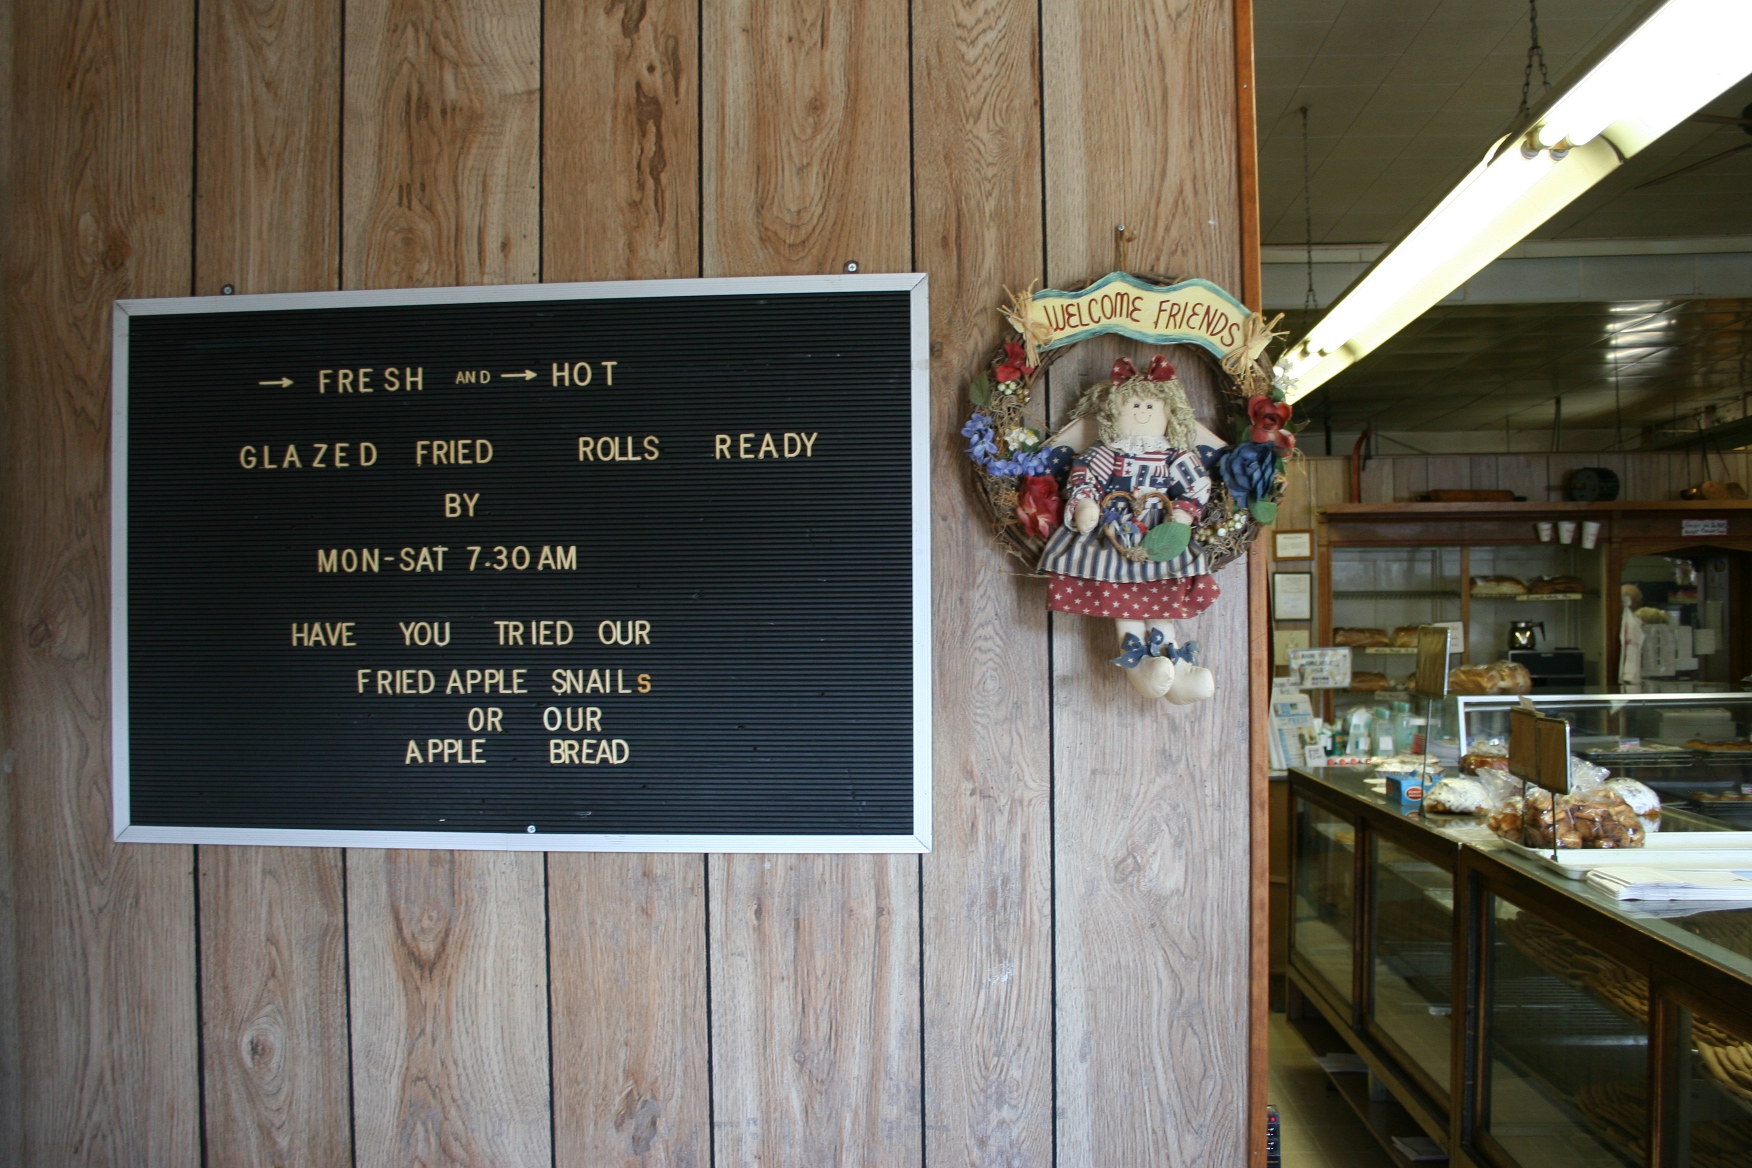 → FRESH AND → HOT
GLAZED FRIED ROLLS READY
BY
MON-SAT 7.30 AM
HAVE YOU TRIED OUR
FRIED APPLE SNAILs
OR OUR
APPLE BREAD
WELCOME FRIENDS